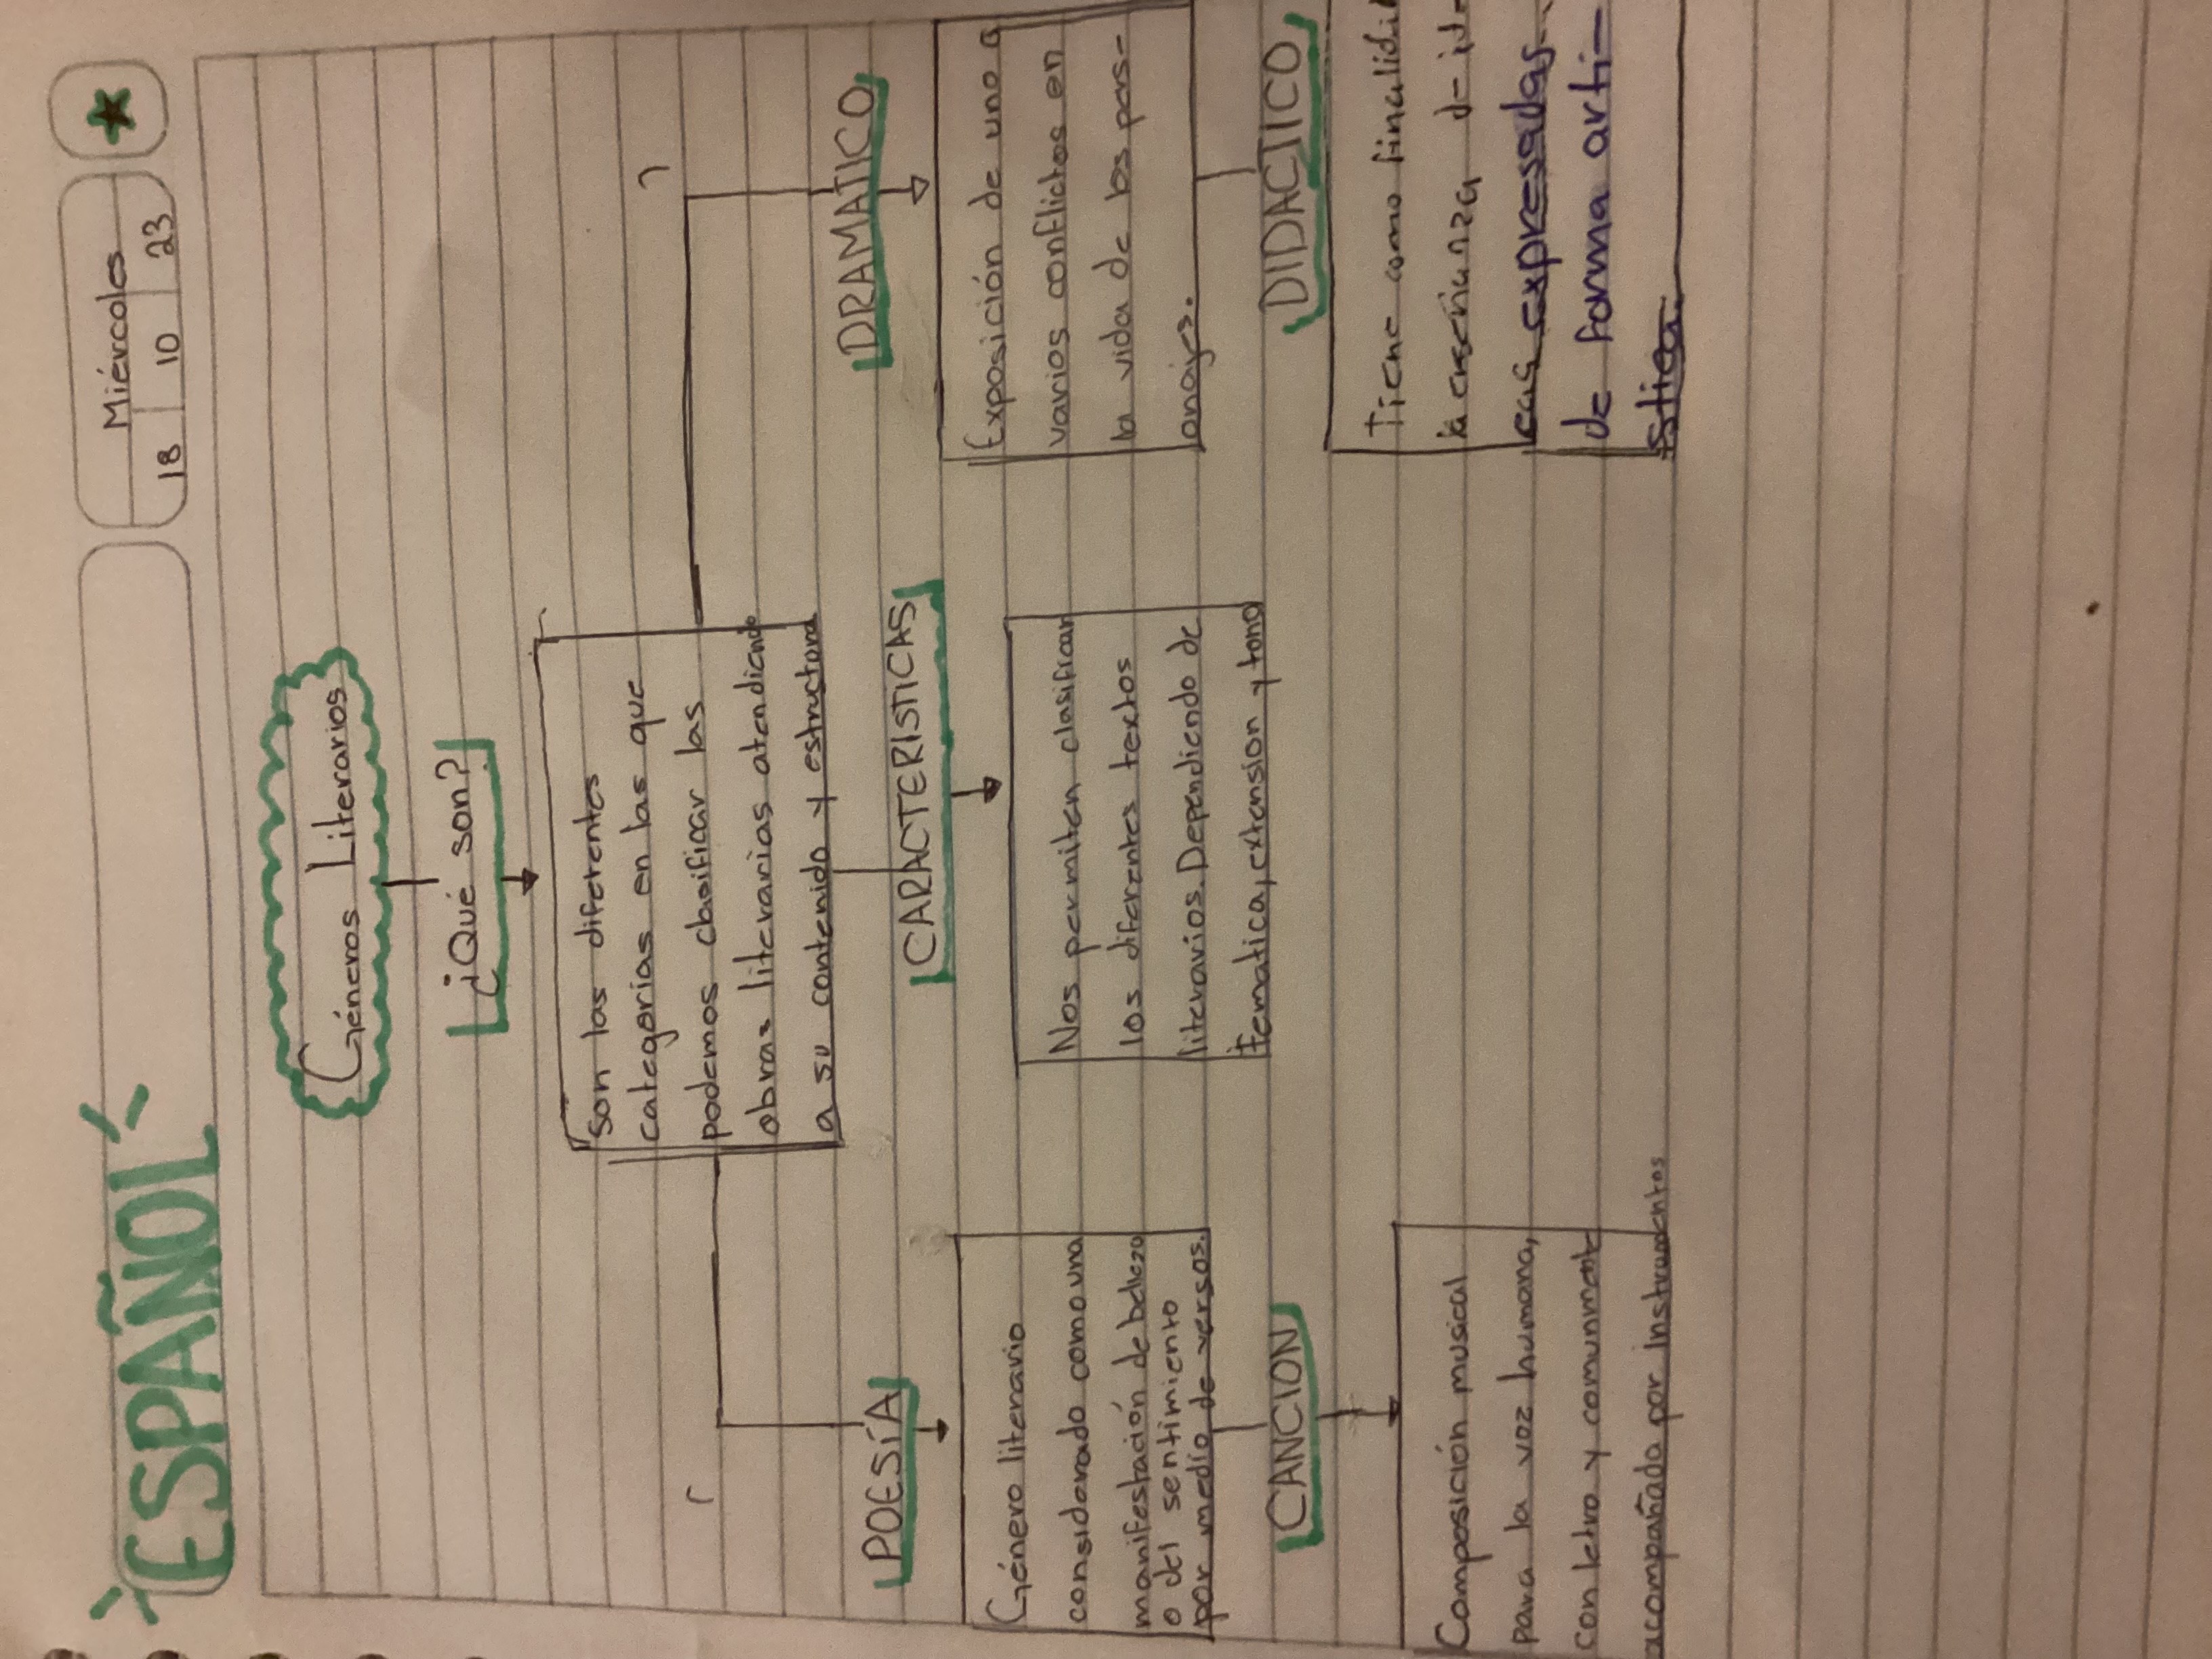 ESPAÑOL
Miércoles
18 10 23
Géneros Literarios
¿Qué son?
Son las diferentes
categorias en las que
podemos clasificar las
obras literarias atendiendo
a su contenido y estructura
POESÍA
Género literario
considerado como una
manifestación de belleza
o del sentimiento
por medio de versos.
CANCION
Composición musical
para la voz humana,
con letra y comunmente
acompañado por instrumentos
CARACTERISTICAS
Nos permiten clasificar
los diferentes textos
literarios. Dependiendo de
tematica, extension y tono
DRAMATICO
Exposición de uno o
varios conflictos en
la vida de los pers-
onajes.
DIDACTICO
Tiene como
la enseñanza de id-
eas expresadas
de forma arti-
stica.